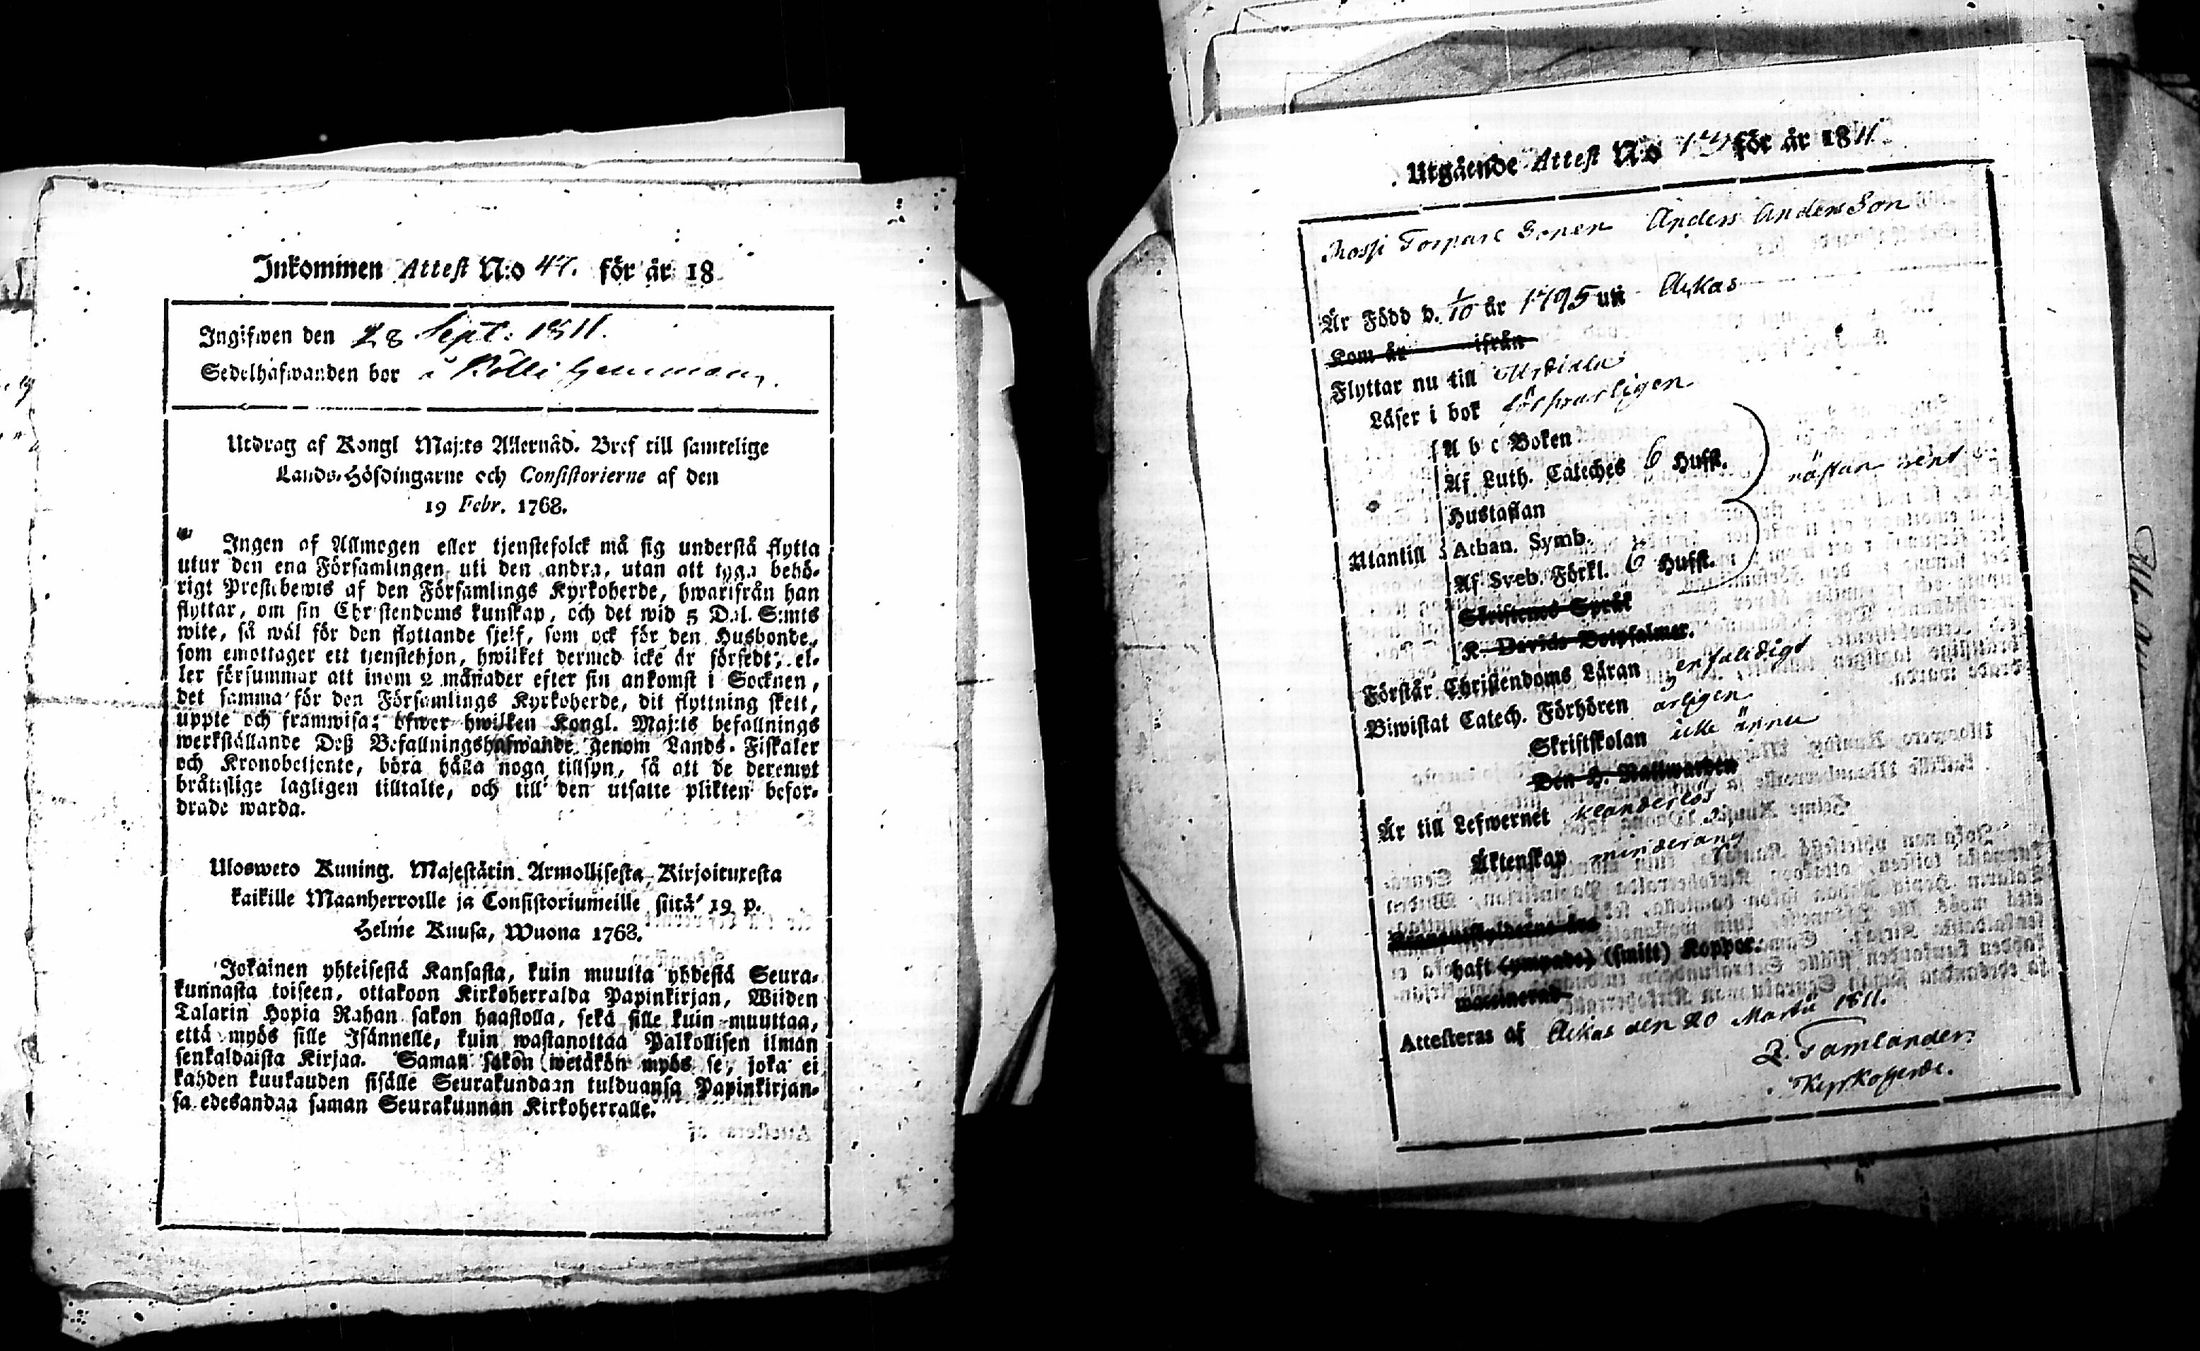 Inkommen Attest N:o 47. för år 18
Ingifwen den 28 Sept: 1811.
Sedelhafwanden bor å Kolli hemman.
Utdrag af Kongl Maj:ts Allernåd. Bref till samtelige
Lands-Höfdingarne och Consistorierne af den
19 Febr. 1768.
Ingen af Allmogen eller tjenstefolck må sig understå flytta
utur den ena Församlingen uti den andra, utan att taga behö-
rigt Prestebewis af den Församlings Kyrkoherde, hwarifrån han
flyttar, om sin Christendoms kunskap, och det wid 5 Dal. S:mts
wite, så wäl för den flyttande sjelf, som ock för den Husbonde,
som emottager ett tjenstehjon, hwilket dermed icke är försedt; el-
ler försummar att inom 2 månader efter sin ankomst i Socknen,
det samma för den Församlings Kyrkoherde, dit flyttning skett,
uppte och framwisa; öfwer hwilken Kongl. Maj:ts befallnings
werkställande Deß Befallningshafwande genom Lands-Fiskaler
och Kronobetjente, böra hålla noga tillsyn, så att de deremot
bråttslige lagligen tilltalte, och till den utsatte plikten befor-
drade warda.
Ulosweto Kuning. Majestätin Armollisesta Kirjoituxesta
kaikille Maanherroille ja Consistoriumeille siitä 19 p.
Helme Kuusa, Wuona 1768.
Jokainen yhteisestä Kansasta, kuin muutta yhdestä Seura-
kunnasta toiseen, ottakoon Kirkoherralda Papinkirjan, Wiiden
Talarin Hopia Rahan sakon haastolla, sekä sille kuin muuttaa,
että myös sille Isännelle, kuin wastanottaa Palkollisen ilman
senkaldaista Kirjaa. Saman sakon wetäkön myös se, joka ei
kahden kuukauden sisälle Seurakundaan tulduansa Papinkirjan-
sa edesandaa saman Seurakunnan Kirkoherralle.
Utgående Attest N:o för år 1811.
Torpare Sonen Anders Andersson
Är Född d. 1/10 år 1795 uti Ackas
Kom år ifrån
Flyttar nu till Urdiala
Läser i bok försvarligen
A b c Boken
Af Luth. Cateches 6 Hufst.
Hustaflan
nästan rent
Utantill Athan. Symb.
Af Sveb. Förkl. 6 Hufst.
Skriftenes Språk
K. Davids Botpsalmer.
Förstår Christendoms Läran enfaldigt
Biwistat Catech. Förhören årligen
Skriftskolan icke ännu
Den H. Nattwarden
Är till Lefwernet klanderlös
Äktenskap minderårig
haft (ympade) (smitt) Koppor.
waccinerad
Attesteras af Ackas den 20 Martii 1811.
Z. Tamlander.
Kyrkoherde.